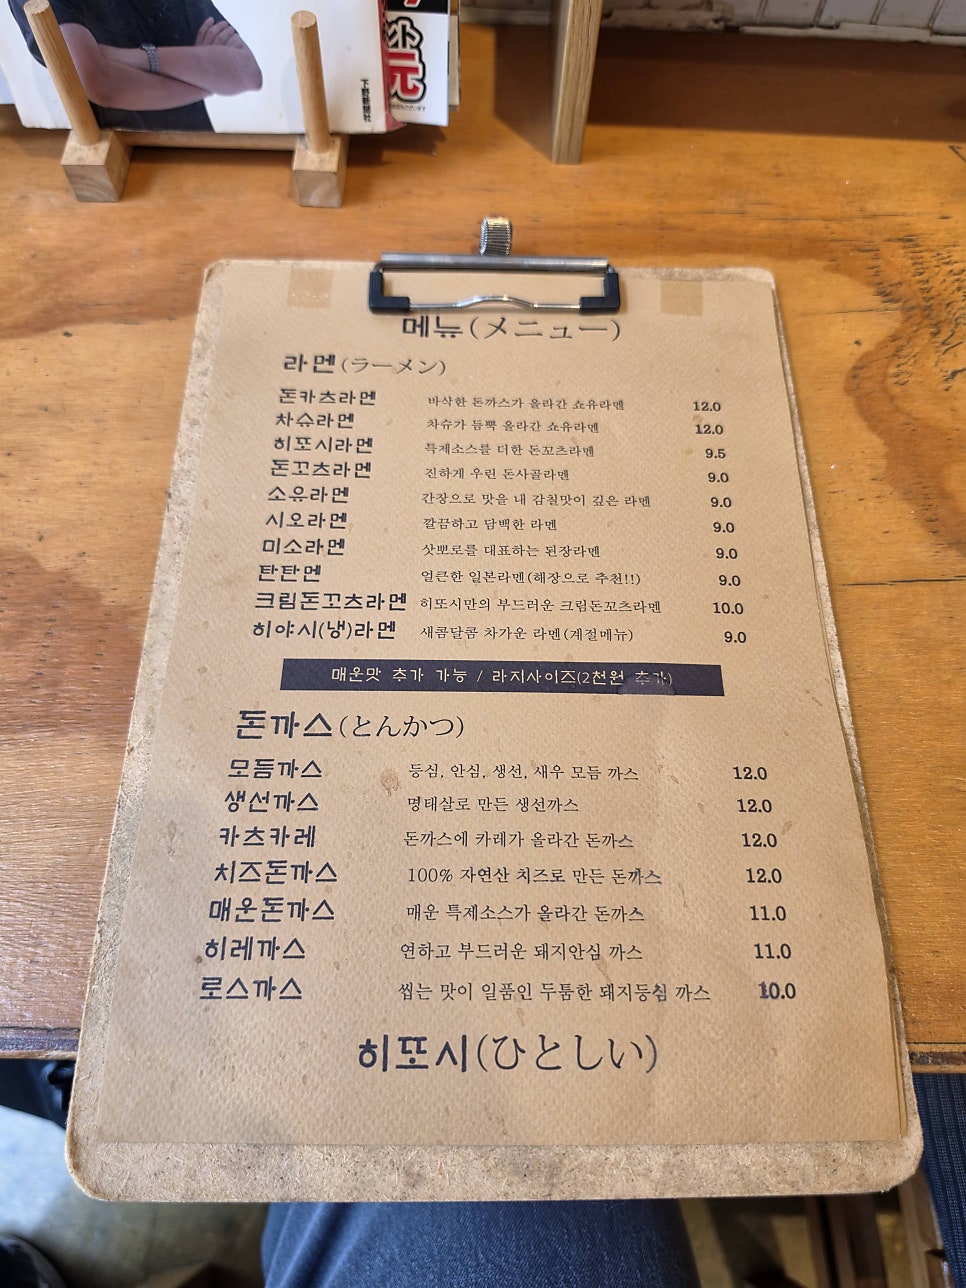 元
下野新聞社
메뉴(メニュー)
라멘(ラーメン)
돈카츠라멘 바삭한 돈까스가 올라간 쇼유라멘 12.0
차슈라멘 차슈가 듬뿍 올라간 쇼유라멘 12.0
히포시라멘 특제소스를 더한 돈꼬츠라멘 9.5
돈꼬츠라멘 진하게 우린 돈사골라멘 9.0
소유라멘 간장으로 맛을 내 감칠맛이 깊은 라멘 9.0
시오라멘 깔끔하고 담백한 라멘 9.0
미소라멘 삿뽀로를 대표하는 된장라멘 9.0
탄탄멘 얼큰한 일본라멘(해장으로 추천!!) 9.0
크림돈꼬츠라멘 히포시만의 부드러운 크림돈꼬츠라멘 10.0
히야시(냉)라멘 새콤달콤 차가운 라멘(계절메뉴) 9.0
매운맛 추가 가능 / 라지사이즈(2천원 추가)
돈까스(とんかつ)
모듬까스 등심, 안심, 생선, 새우 모듬 까스 12.0
생선까스 명태살로 만든 생선까스 12.0
카츠카레 돈까스에 카레가 올라간 돈까스 12.0
치즈돈까스 100% 자연산 치즈로 만든 돈까스 12.0
매운돈까스 매운 특제소스가 올라간 돈까스 11.0
히레까스 연하고 부드러운 돼지안심 까스 11.0
로스까스 씹는 맛이 일품인 두툼한 돼지등심 까스 10.0
히또시(ひとしい)